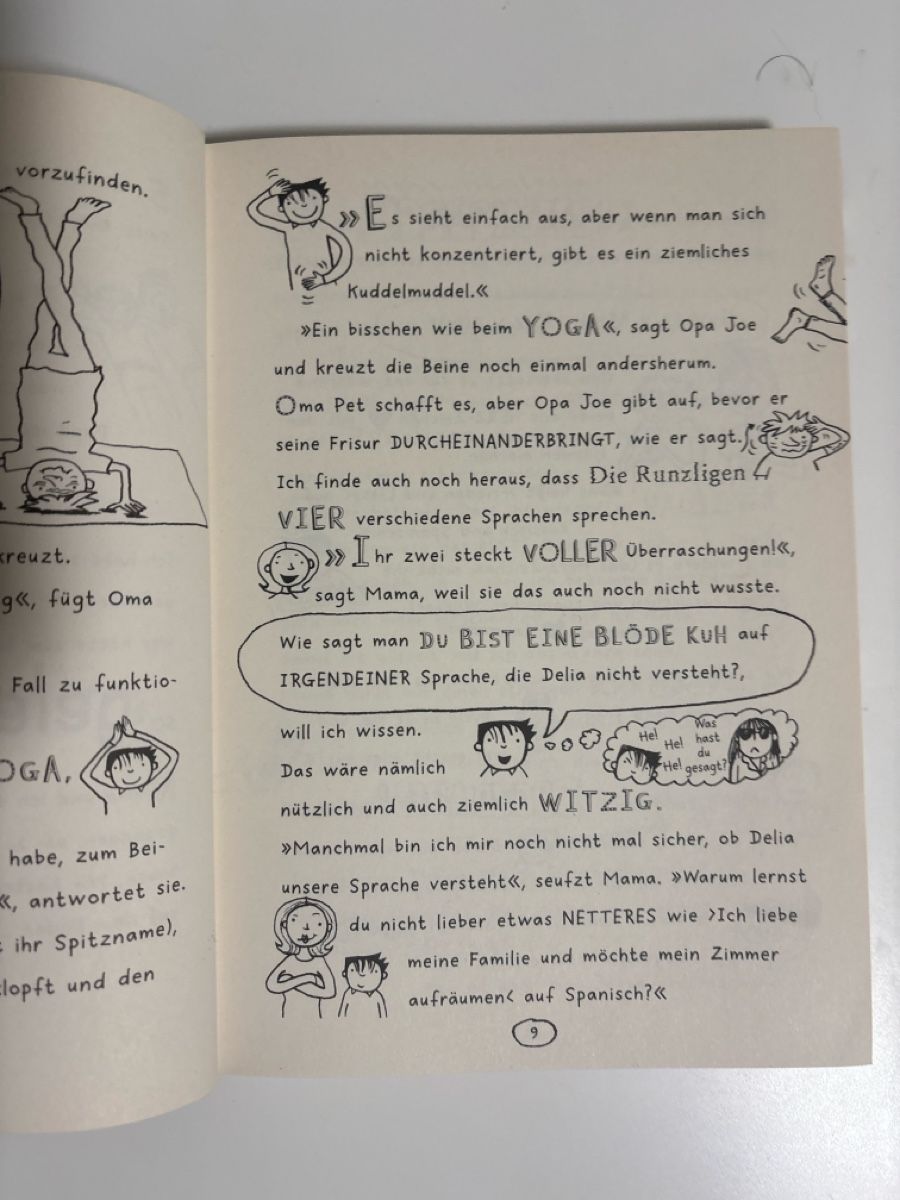 vorzufinden.
kreuzt.
g«, fügt Oma
Fall zu funktio-
OGA,
habe, zum Bei-
«, antwortet sie.
ihr Spitzname),
klopft und den
»Es sieht einfach aus, aber wenn man sich
nicht konzentriert, gibt es ein ziemliches
Kuddelmuddel.«
»Ein bisschen wie beim YOGA«, sagt Opa Joe
und kreuzt die Beine noch einmal andersherum.
Oma Pet schafft es, aber Opa Joe gibt auf, bevor er
seine Frisur DURCHEINANDERBRINGT, wie er sagt.
Ich finde auch noch heraus, dass Die Runzligen
VIER verschiedene Sprachen sprechen.
»Ihr zwei steckt VOLLER Überraschungen!«,
sagt Mama, weil sie das auch noch nicht wusste.
Wie sagt man DU BIST EINE BLÖDE KUH auf
IRGENDEINER Sprache, die Delia nicht versteht?,
will ich wissen.
He!
He!
He!
Was
hast
du
gesagt?
Das wäre nämlich
nützlich und auch ziemlich WITZIG.
»Manchmal bin ich mir noch nicht mal sicher, ob Delia
unsere Sprache versteht«, seufzt Mama. »Warum lernst
du nicht lieber etwas NETTERES wie ›Ich liebe
meine Familie und möchte mein Zimmer
aufräumen‹ auf Spanisch?«
9